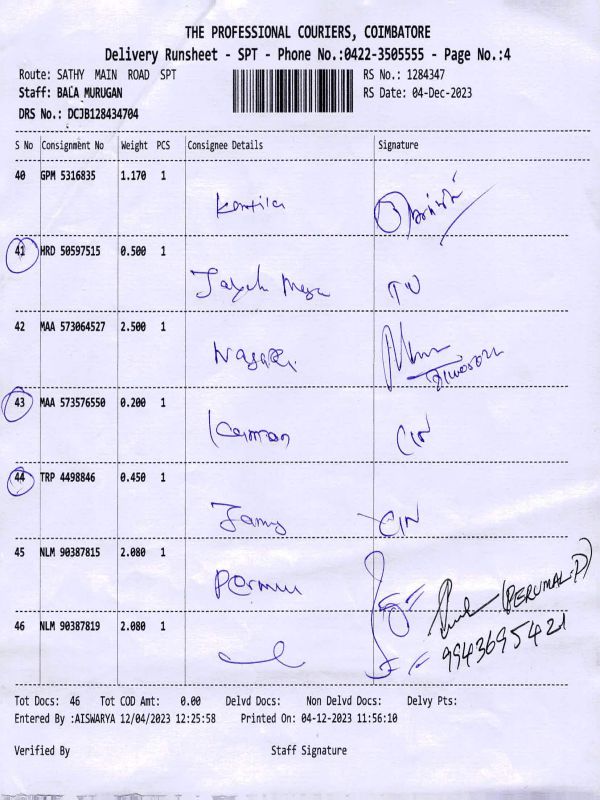 THE PROFESSIONAL COURIERS, COIMBATORE
Delivery Runsheet - SPT - Phone No.:0422-3505555 - Page No.:4
Route: SATHY MAIN ROAD SPT RS No.: 1284347
Staff: BALA MURUGAN RS Date: 04-Dec-2023
DRS No.: DCJB128434704
S No Consignment No Weight PCS Consignee Details Signature
40 GPM 5316835 1.170 1
41 HRD 50597515 0.500 1
42 MAA 573064527 2.500 1
43 MAA 573576550 0.200 1
CIN
44 TRP 4498846 0.450 1
CIN
45 NLM 90387815 2.080 1
(PERUMAL.P)
46 NLM 90387819 2.080 1
9943695421
Tot Docs: 46 Tot COD Amt: 0.00 Delvd Docs: Non Delvd Docs: Delvy Pts:
Entered By :AISWARYA 12/04/2023 12:25:58 Printed On: 04-12-2023 11:56:10
Verified By Staff Signature